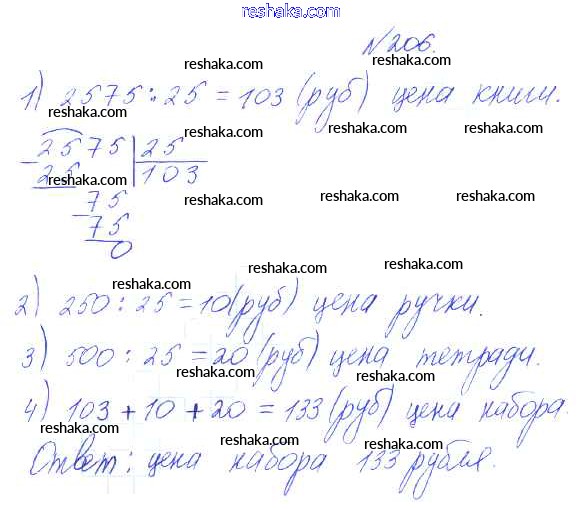 www.reshaka.com
№206.
reshaka.com
1) 2575 : 25 = 103 (руб) цена книги.
reshaka.com reshaka.com reshaka.com
2575 | 25
25 103
reshaka.com
75
75
0
reshaka.com reshaka.com reshaka.com
reshaka.com reshaka.com
reshaka.com
2) 250 : 25 = 10 (руб) цена ручки.
reshaka.com reshaka.com
3) 500 : 25 = 20 (руб) цена тетради.
reshaka.com reshaka.com
4) 103 + 10 + 20 = 133 (руб) цена набора.
reshaka.com reshaka.com
Ответ: цена набора 133 рубля.
reshaka.com reshaka.com